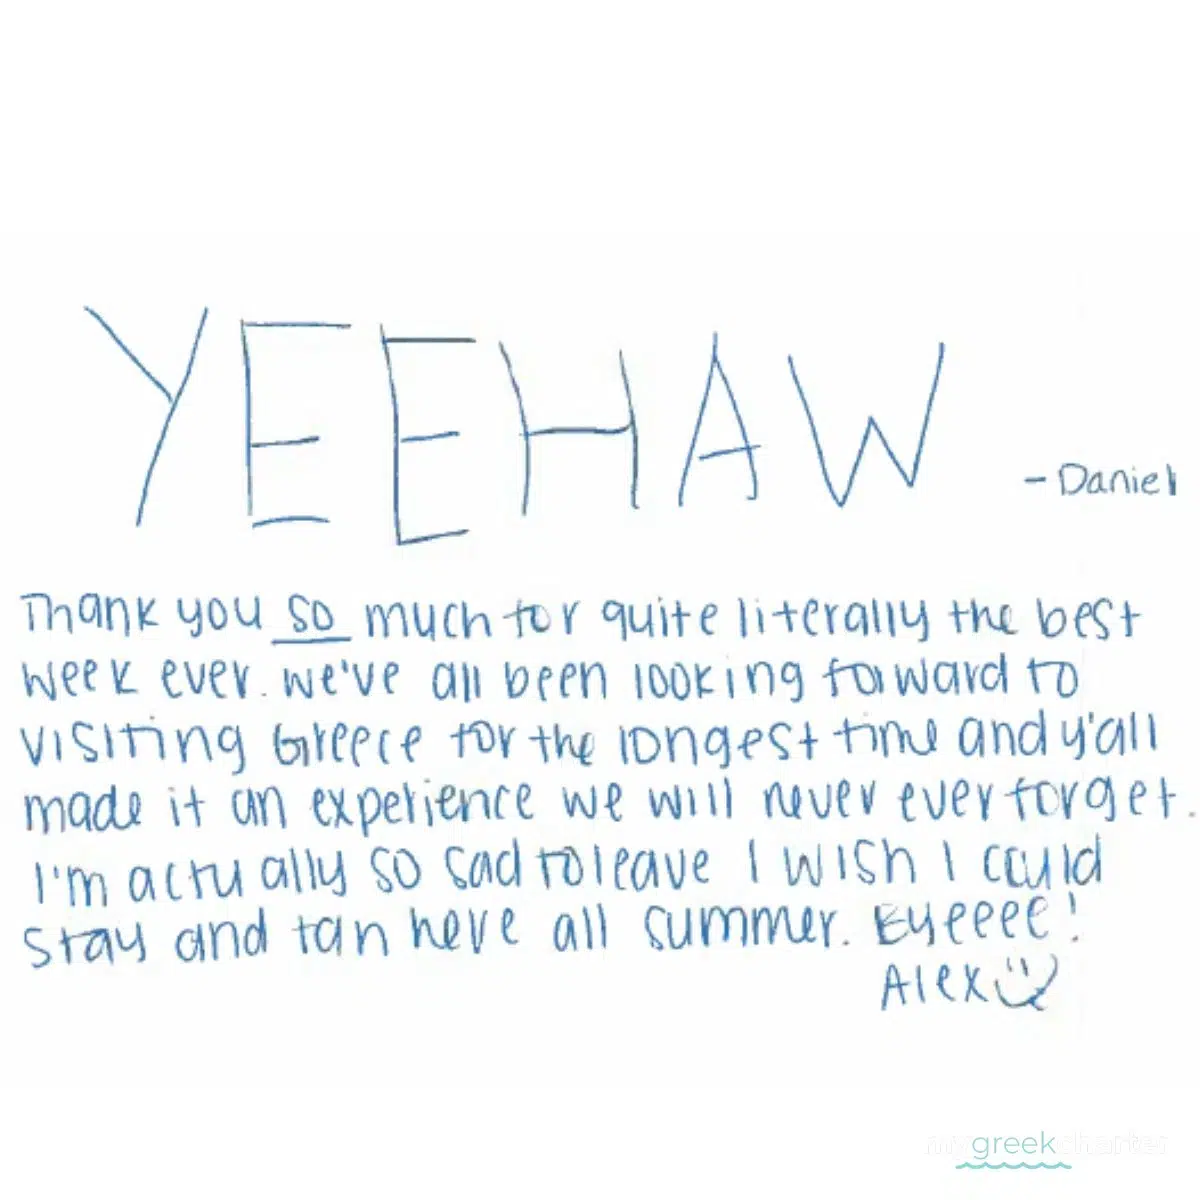 YEEHAW
- Daniel
Thank you so much for quite literally the best
week ever. we've all been looking forward to
visiting Greece for the longest time and y'all
made it an experience we will never ever forget.
I'm actually so sad to leave I wish I could
stay and tan here all summer. Eyeeee!
Alex
mygreekcharter